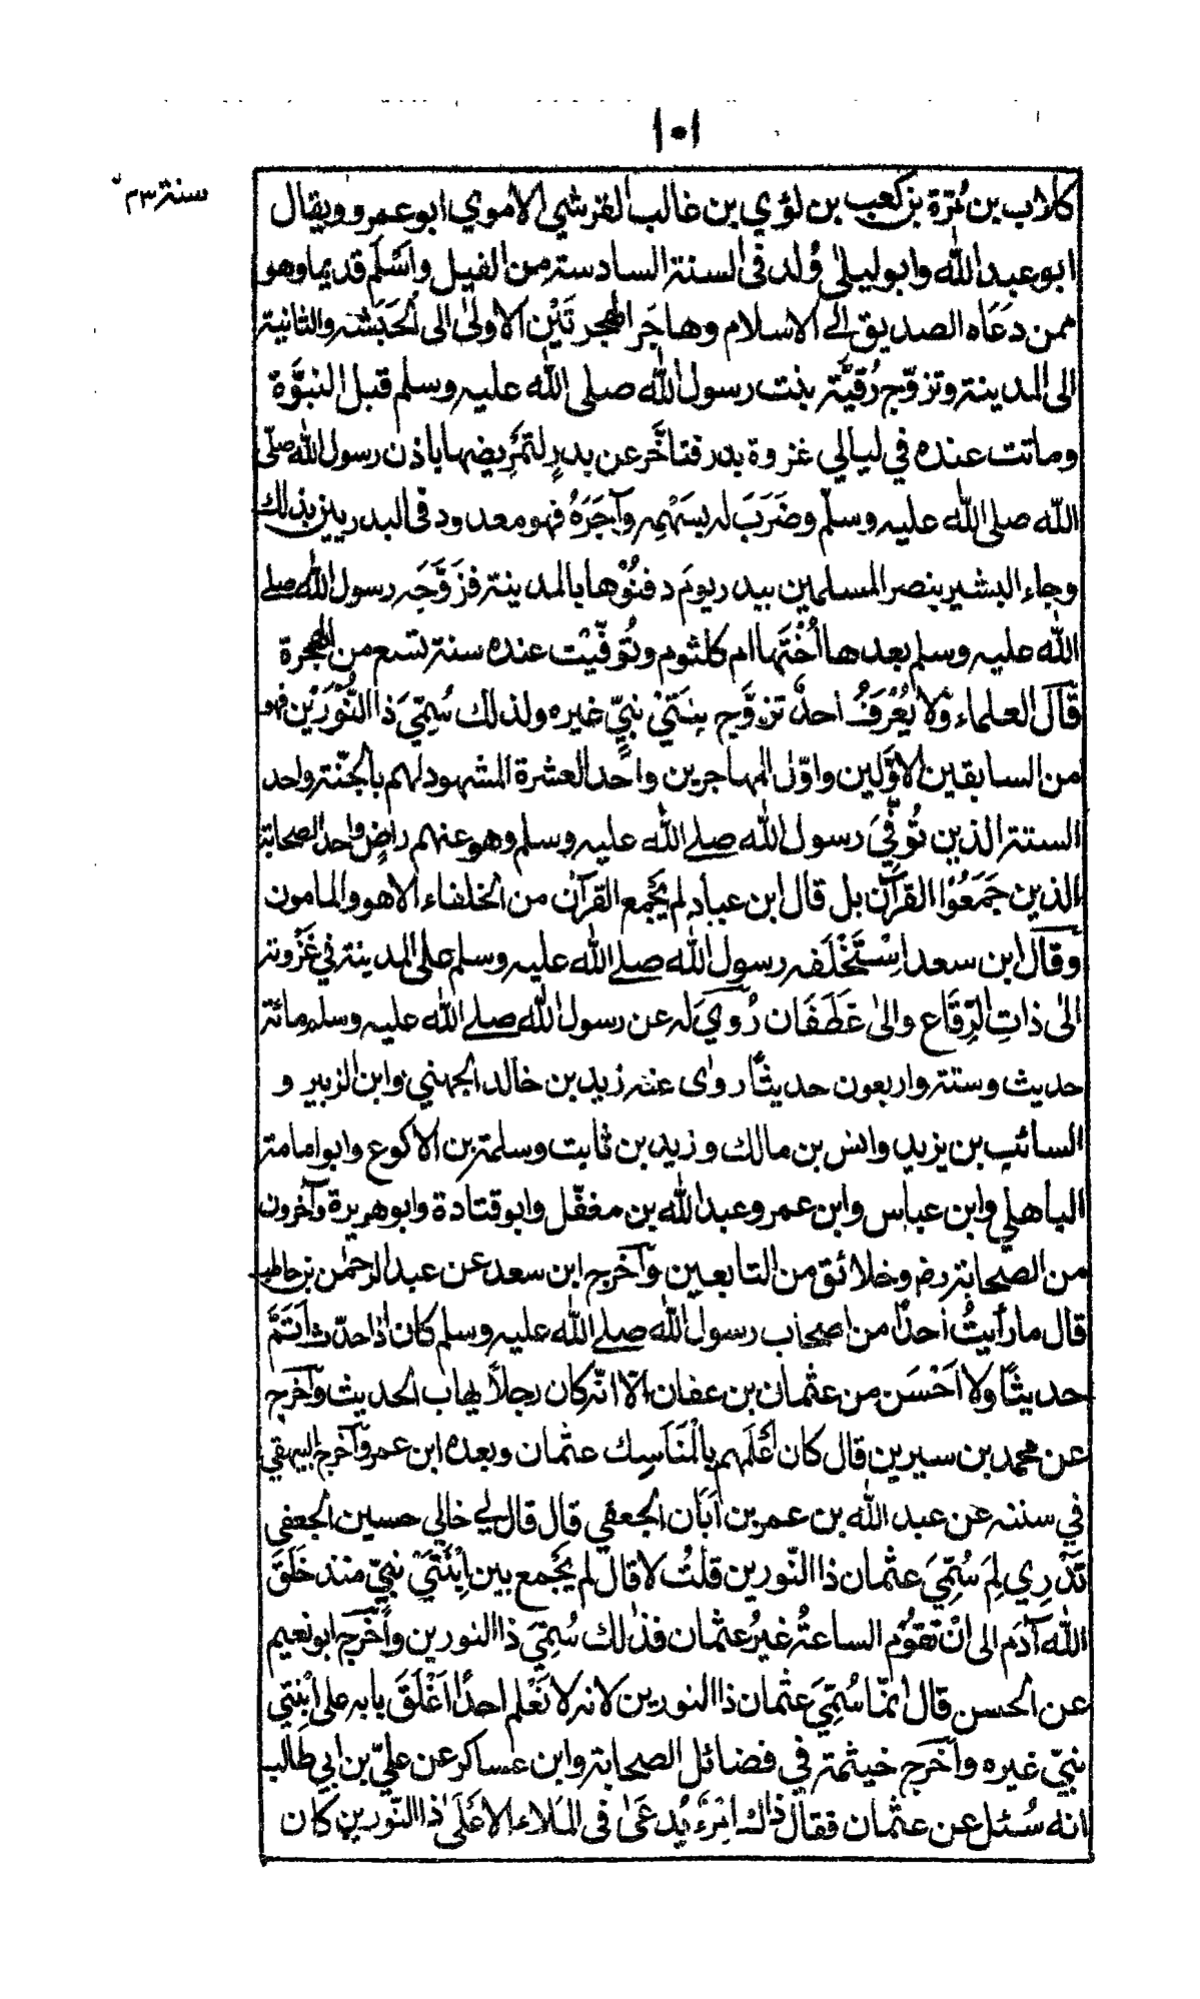 ١٠١
سنة ٢٣
كلاب بن مُرّة بن كعب بن لؤي بن غالب القرشي الاموي ابو عمرو ويقال
ابو عبد الله وابو ليلىٰ وُلد فى السنة السادسة من الفيل واَسْلَم قديما وهو
ممن دعَاه الصديق الے الاسلام وهاجَر الهجرتَيْن الاولىٰ الى الحَبَشة والثانية
الى المدينة وتزوّج رُقَيَّة بنت رسول الله صلى الله عليه وسلم قبل النبوَّة
وماتت عنده في ليالي غزوة بدر فتاخَّر عن بدرٍ لتمْرِيضها باذن رسول الله صلّى
الله صلى الله عليه وسلّم وضَرَبَ له بسَهْمِه وآجَرَهُ فهو معدود فى البدريين بذلك
وجاء البشير بنصر المسلمين ببدر يومَ دفنُوْها بالمدينة فزَوَّجَه رسول الله صلے
الله عليه وسلم بعدها اُخْتَها ام كلثوم وتُوفّيَت عنده سنة تسع من الهجرة
قال العلماء ولا يُعْرَفُ احدٌ تزوَّج بنتَيْ نبيٍّ غيره ولذلك سُمِّيَ ذا النُّوْرَيْن فهو
من السابقين الاوَّلين واوّل المهاجرين واحد العشرة المشهود لهم بالجنّة واحد
الستة الذين تُوفِّيَ رسول الله صلے الله عليه وسلم وهو عنهم راضٍ واحد الصحابة
الذين جَمَعُوْا القرآن بل قال ابن عباد لم يَجْمع القرآن من الخلفاء الا هو والمامون
وقال ابن سعد اسْتَخْلَفه رسول الله صلے الله عليه وسلم على المدينة في غَزْوته
الىٰ ذاتِ الرِّقَاع والىٰ غَطَفَان رُوِيَ له عن رسول الله صلے الله عليه وسلم مائة
حديث وستة واربعون حديثًا روٰى عنه زيد بن خالد الجهني وابن الزبير و
السائب بن يزيد وانس بن مالك وزيد بن ثابت وسلمة بن الاكوع وابو امامة
الباهلي وابن عباس وابن عمر وعبد الله بن مغفّل وابو قتادة وابو هريرة وآخرون
من الصحابة رض وخلائق من التابعين وآخرج ابن سعد عن عبد الرحمٰن بن حاطب
قال ما رأيتُ أحدًا من اصحاب رسول الله صلے الله عليه وسلم كان اذا حدّث اَتَمَّ
حديثًا ولا اَحْسَن من عثمان بن عفان الّا انّه كان رجلاً يهاب الحديث وآخرج
عن محمد بن سيرين قال كان اَعْلَمهم بالمَنَاسِك عثمان وبعده ابن عمر وآخرج البيهقي
في سننه عن عبد الله بن عمر بن اَبَان الجعفي قال قال لي خالي حسين الجعفي
تَدْرِي لِمَ سُمِّيَ عثمان ذا النّورين قلتُ لا قال لم يَجْمع بين اِبْنَتَيْ نبيّ منذ خَلَقَ
الله آدَم الى انْ تقوْم الساعةُ غيرُ عثمان فذٰلك سُمِّيَ ذا النورين وآخرج ابو نعيم
عن الحسن قال انمّا سُمِّيَ عثمان ذا النورين لانه لا نَعْلم احدًا اَغْلَقَ بابه على ابْنتَي
نبيّ غيره وآخرج خيثمة في فضائل الصحابة وابن عساكر عن عليّ بن ابي طالب
انه سُئل عن عثمان فقال ذاك امْرءٌ يُدعَىٰ فى الملاء الاعَلَىٰ ذا النّورين كان